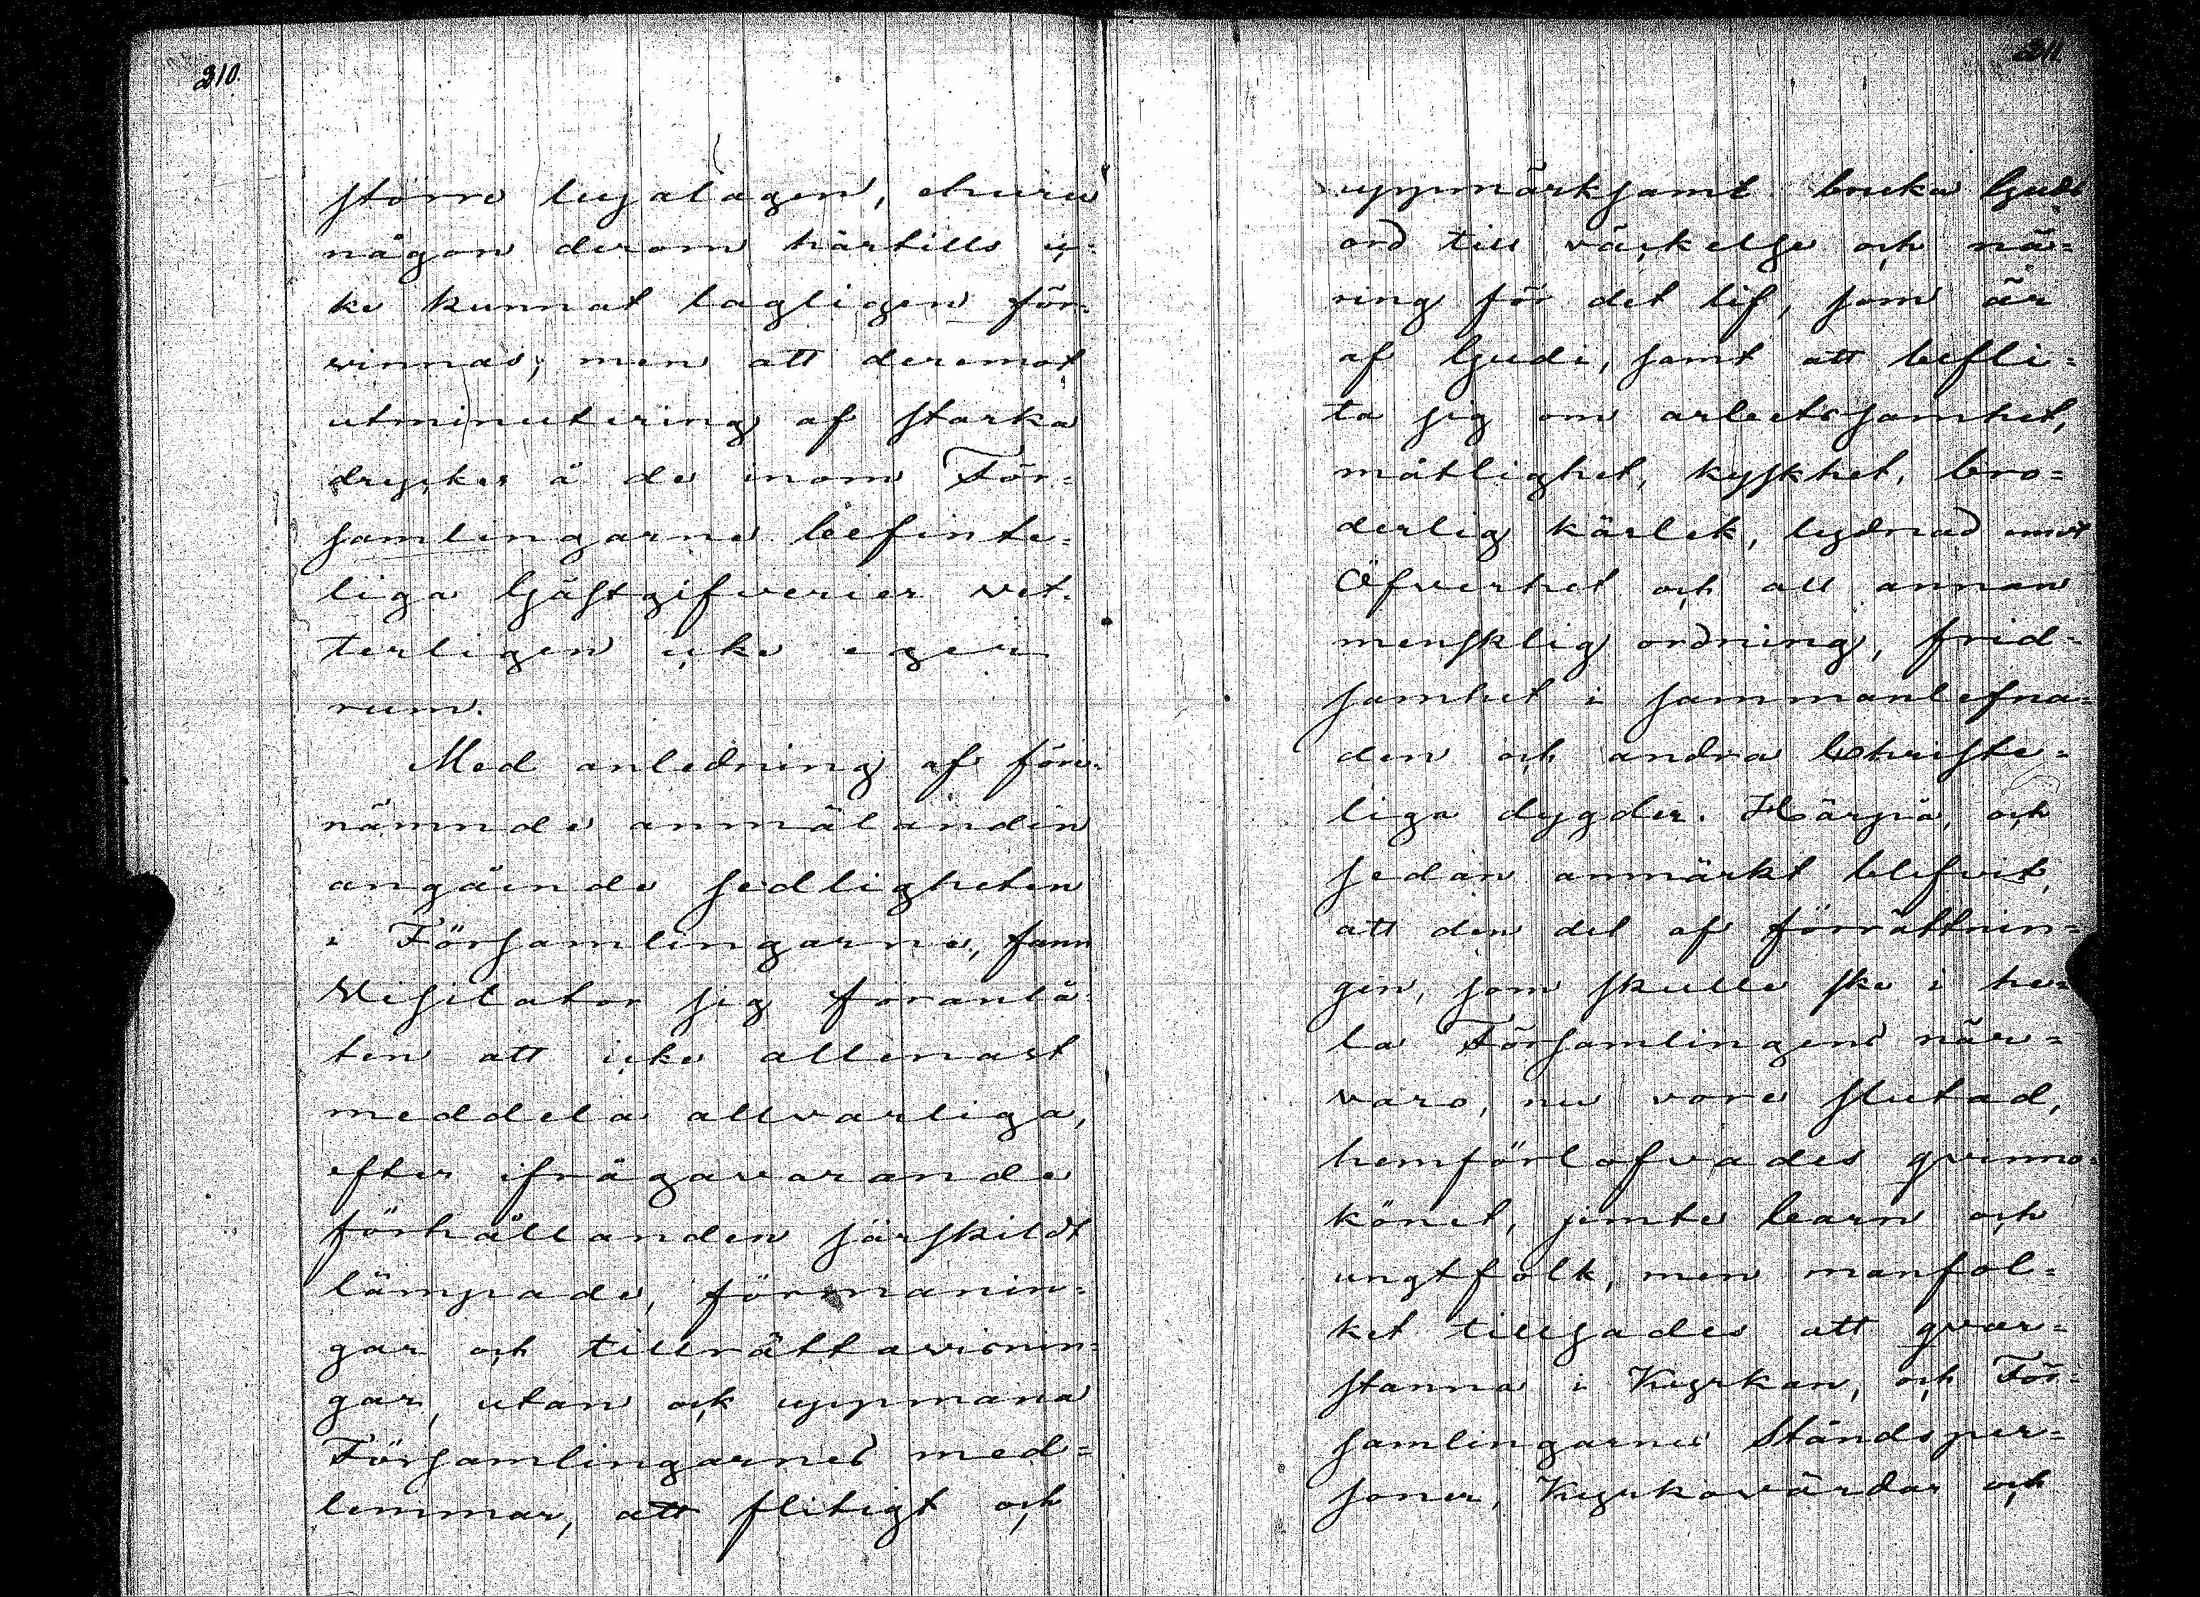 210.
större lugalagen, churu
någon derom härtills ic-
ke kunnat lagligen för-
vinnas; men att deremot
utminutering af starka
drycker å de inom För-
samlingarne befinte-
liga Gästgifverier vet-
terligen icke eger
rum.
Med anledning af före-
nämnde anmälanden
angående sedligheten
i Församlingarne, fann
Visitator sig föranlå-
ten att icke allenast
meddela allvarliga,
efter ifrågavarande
förhållanden särskildt
lämpade, förmanin-
gar och tillrättavisnin-
gar, utan ock uppmana
Församlingarnes med-
lemmar, att flitigt och
211
uppmärksamt bruka Guds
ord till väckelse och nä-
ring för det lif, som är
af Gudi, samt att befli-
ta sig om arbetsamhet,
måtlighet, kyskhet, bro-
derlig kärlek, lydnad emot
Öfverhet och all annan
mensklig ordning, frid-
samhet i sammanlefna-
den och andra Christe-
liga dygder. Härpå, och
sedan anmärkt blifvit,
att den del af förrättnin-
gen, som skulle ske i he-
la Församlingens när-
varo, nu vore slutad,
hemförlofvades qvinno-
könet, jemte barn och
ungtfolk, men manfol-
ket tillsades att qvar-
stanna i Kyrkan, och För-
samlingarnes Ståndsper-
soner, Kyrkovärdar och